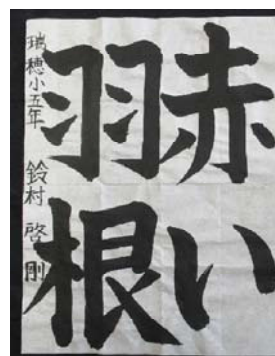 赤い
羽根
瑞穂小五年 鈴村啓剛